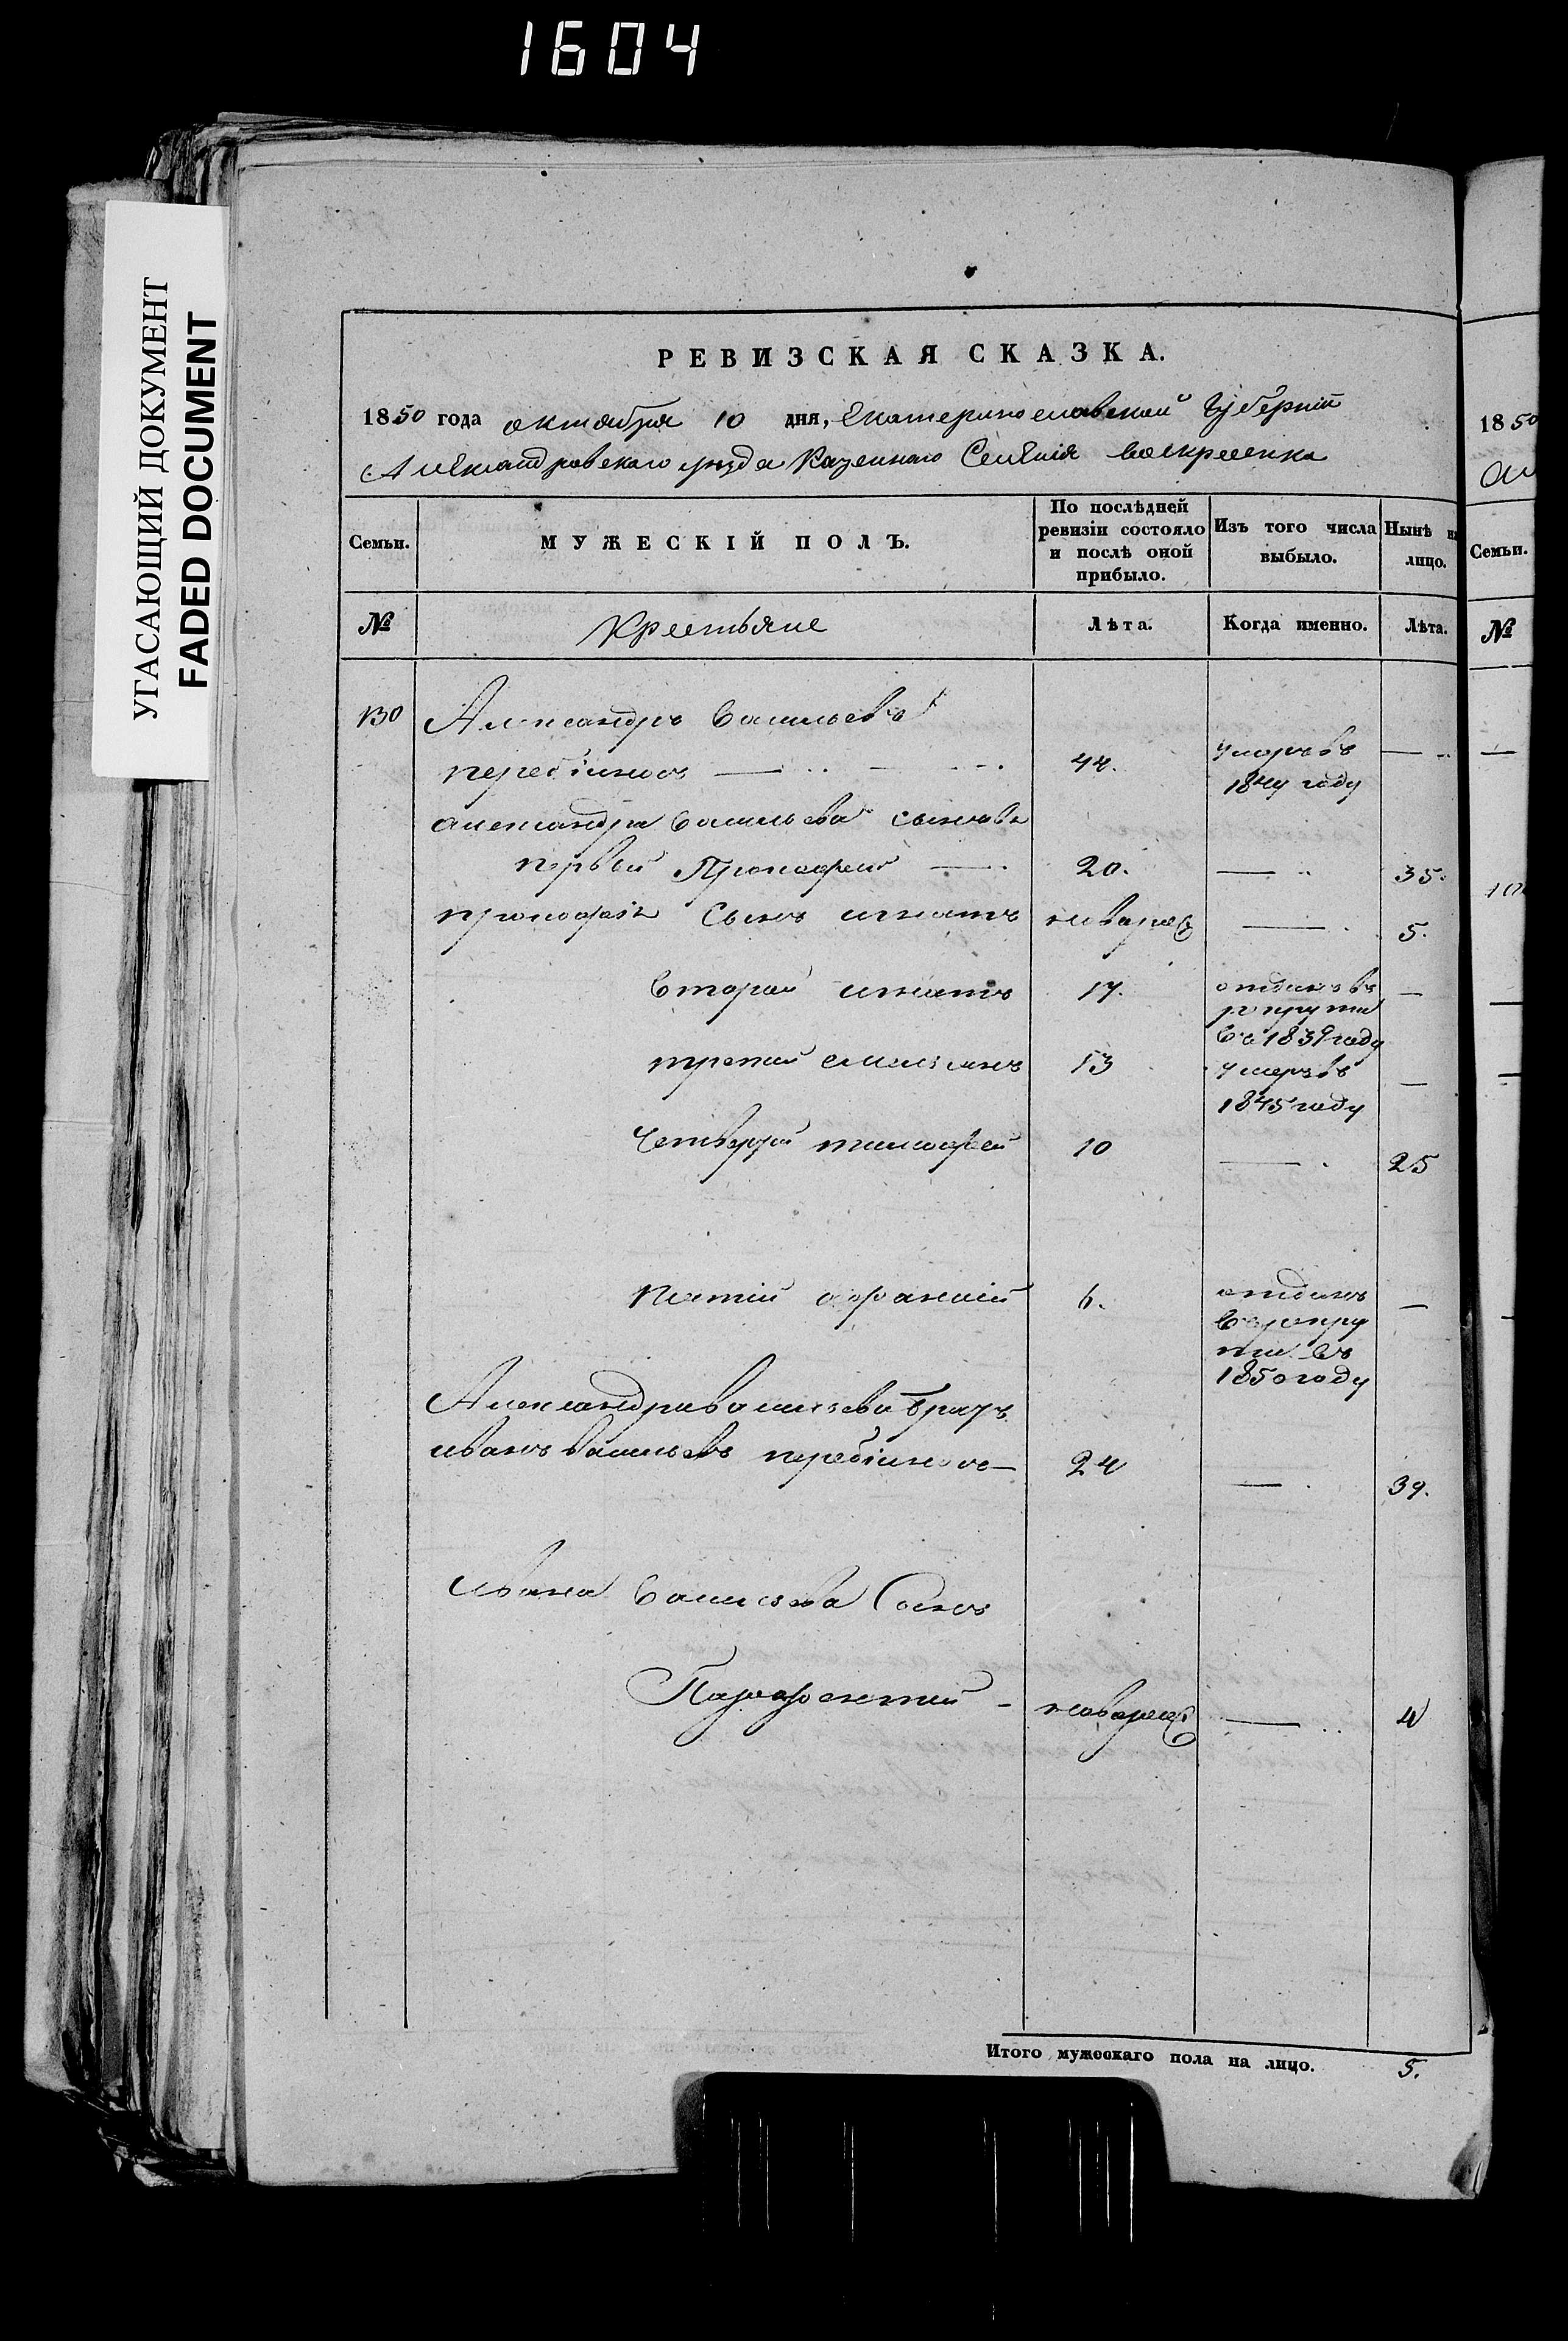 1604
УГАСАЮЩИЙ ДОКУМЕНТ
FADED DOCUMENT
РЕВИЗСКАЯ СКАЗКА.
1850 года октября 10 дня, Екатеринославской Губерній
Александровского уезда Казенного Селенія Воскресенка
Семьи. МУЖЕСКІЙ ПОЛЪ. По послѣдней ревизіи состояло и послѣ оной прибыло. Изъ того числа выбыло. Нынѣ на лицо.
№ Крестьяне Лѣта. Когда именно. Лѣта.
130 Александръ Васильевъ
44. умеръ въ
1844 году
александра Васильева сыновья
первый Прокофей — 20. — 35.
прокофія Сынъ игнатъ — 5.
Второй игнатъ 17. отданъ въ
рекруты
въ 1839 году
третий емельянъ 13 умеръ въ
1845 году
Четвертый тимофей 10 — 25
Пятий афанасий 6. отданъ
в рекру
ты въ
1850 году
Александра васильева братъ
иванъ Васильевъ 24 — 39.
Ивана Васильева Сынъ
— 4
Итого мужескаго пола на лицо. 5.
1850
Семьи.
№